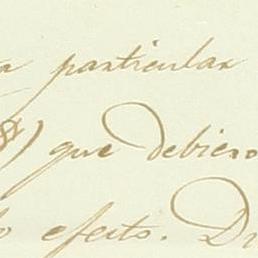 a particular
) que debiero
lo efecto. D